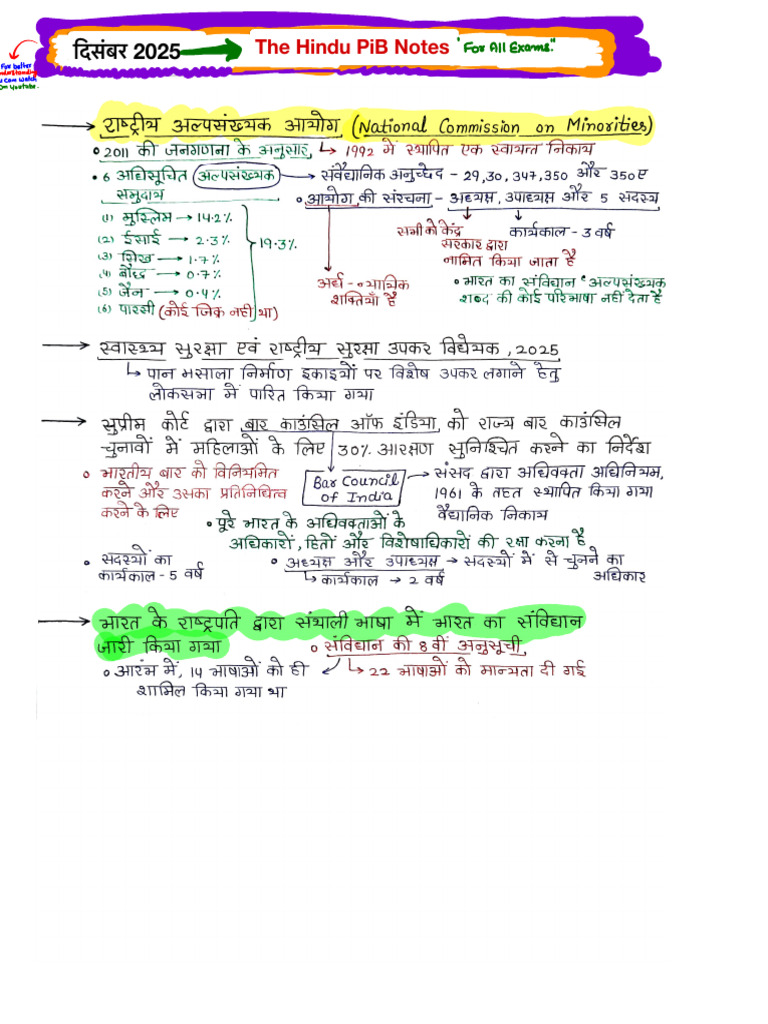 दिसंबर 2025 → The Hindu PiB Notes "For All Exams."
For better
understanding
u can watch
on Youtube.
→ राष्ट्रीय अल्पसंख्यक आयोग (National Commission on Minorities)
• 2011 की जनगणना के अनुसार, ↳ 1992 में स्थापित एक स्वायत्त निकाय
• 6 अधिसूचित अल्पसंख्यक → संवैधानिक अनुच्छेद - 29, 30, 347, 350 और 350ए
समुदाय
• आयोग की संरचना - अध्यक्ष, उपाध्यक्ष और 5 सदस्य
(1) मुस्लिम → 14.2%
(2) ईसाई → 2.3%
(3) सिख → 1.7%
(4) बौद्ध → 0.7%
(5) जैन → 0.4%
(6) पारसी (कोई जिक्र नहीं था)
19.3%
सभी को केंद्र
सरकार द्वारा
नामित किया जाता है
कार्यकाल - 3 वर्ष
अर्ध-न्यायिक
शक्तियाँ है
• भारत का संविधान "अल्पसंख्यक
शब्द की कोई परिभाषा नहीं देता है
→ स्वास्थ्य सुरक्षा एवं राष्ट्रीय सुरक्षा उपकर विधेयक, 2025
↳ पान मसाला निर्माण इकाइयों पर विशेष उपकर लगाने हेतु
लोकसभा में पारित किया गया
→ सुप्रीम कोर्ट द्वारा बार काउंसिल ऑफ इंडिया, को राज्य बार काउंसिल
चुनावों में महिलाओं के लिए 30% आरक्षण सुनिश्चित करने का निर्देश
० भारतीय बार को विनियमित
करने और उसका प्रतिनिधित्व
करने के लिए
Bar Council
of India
→ संसद द्वारा अधिवक्ता अधिनियम,
1961 के तहत स्थापित किया गया
वैधानिक निकाय
• पूरे भारत के अधिवक्ताओं के
अधिकारों, हितों और विशेषाधिकारों की रक्षा करना है
• सदस्यों का
कार्यकाल - 5 वर्ष
• अध्यक्ष और उपाध्यक्ष → सदस्यों में से चुनने का
अधिकार
↳ कार्यकाल → 2 वर्ष
→ भारत के राष्ट्रपति द्वारा संथाली भाषा में भारत का संविधान
जारी किया गया
० संविधान की 8वीं अनुसूची,
० आरंभ में, 14 भाषाओं को ही
शामिल किया गया था
↳ 22 भाषाओं को मान्यता दी गई